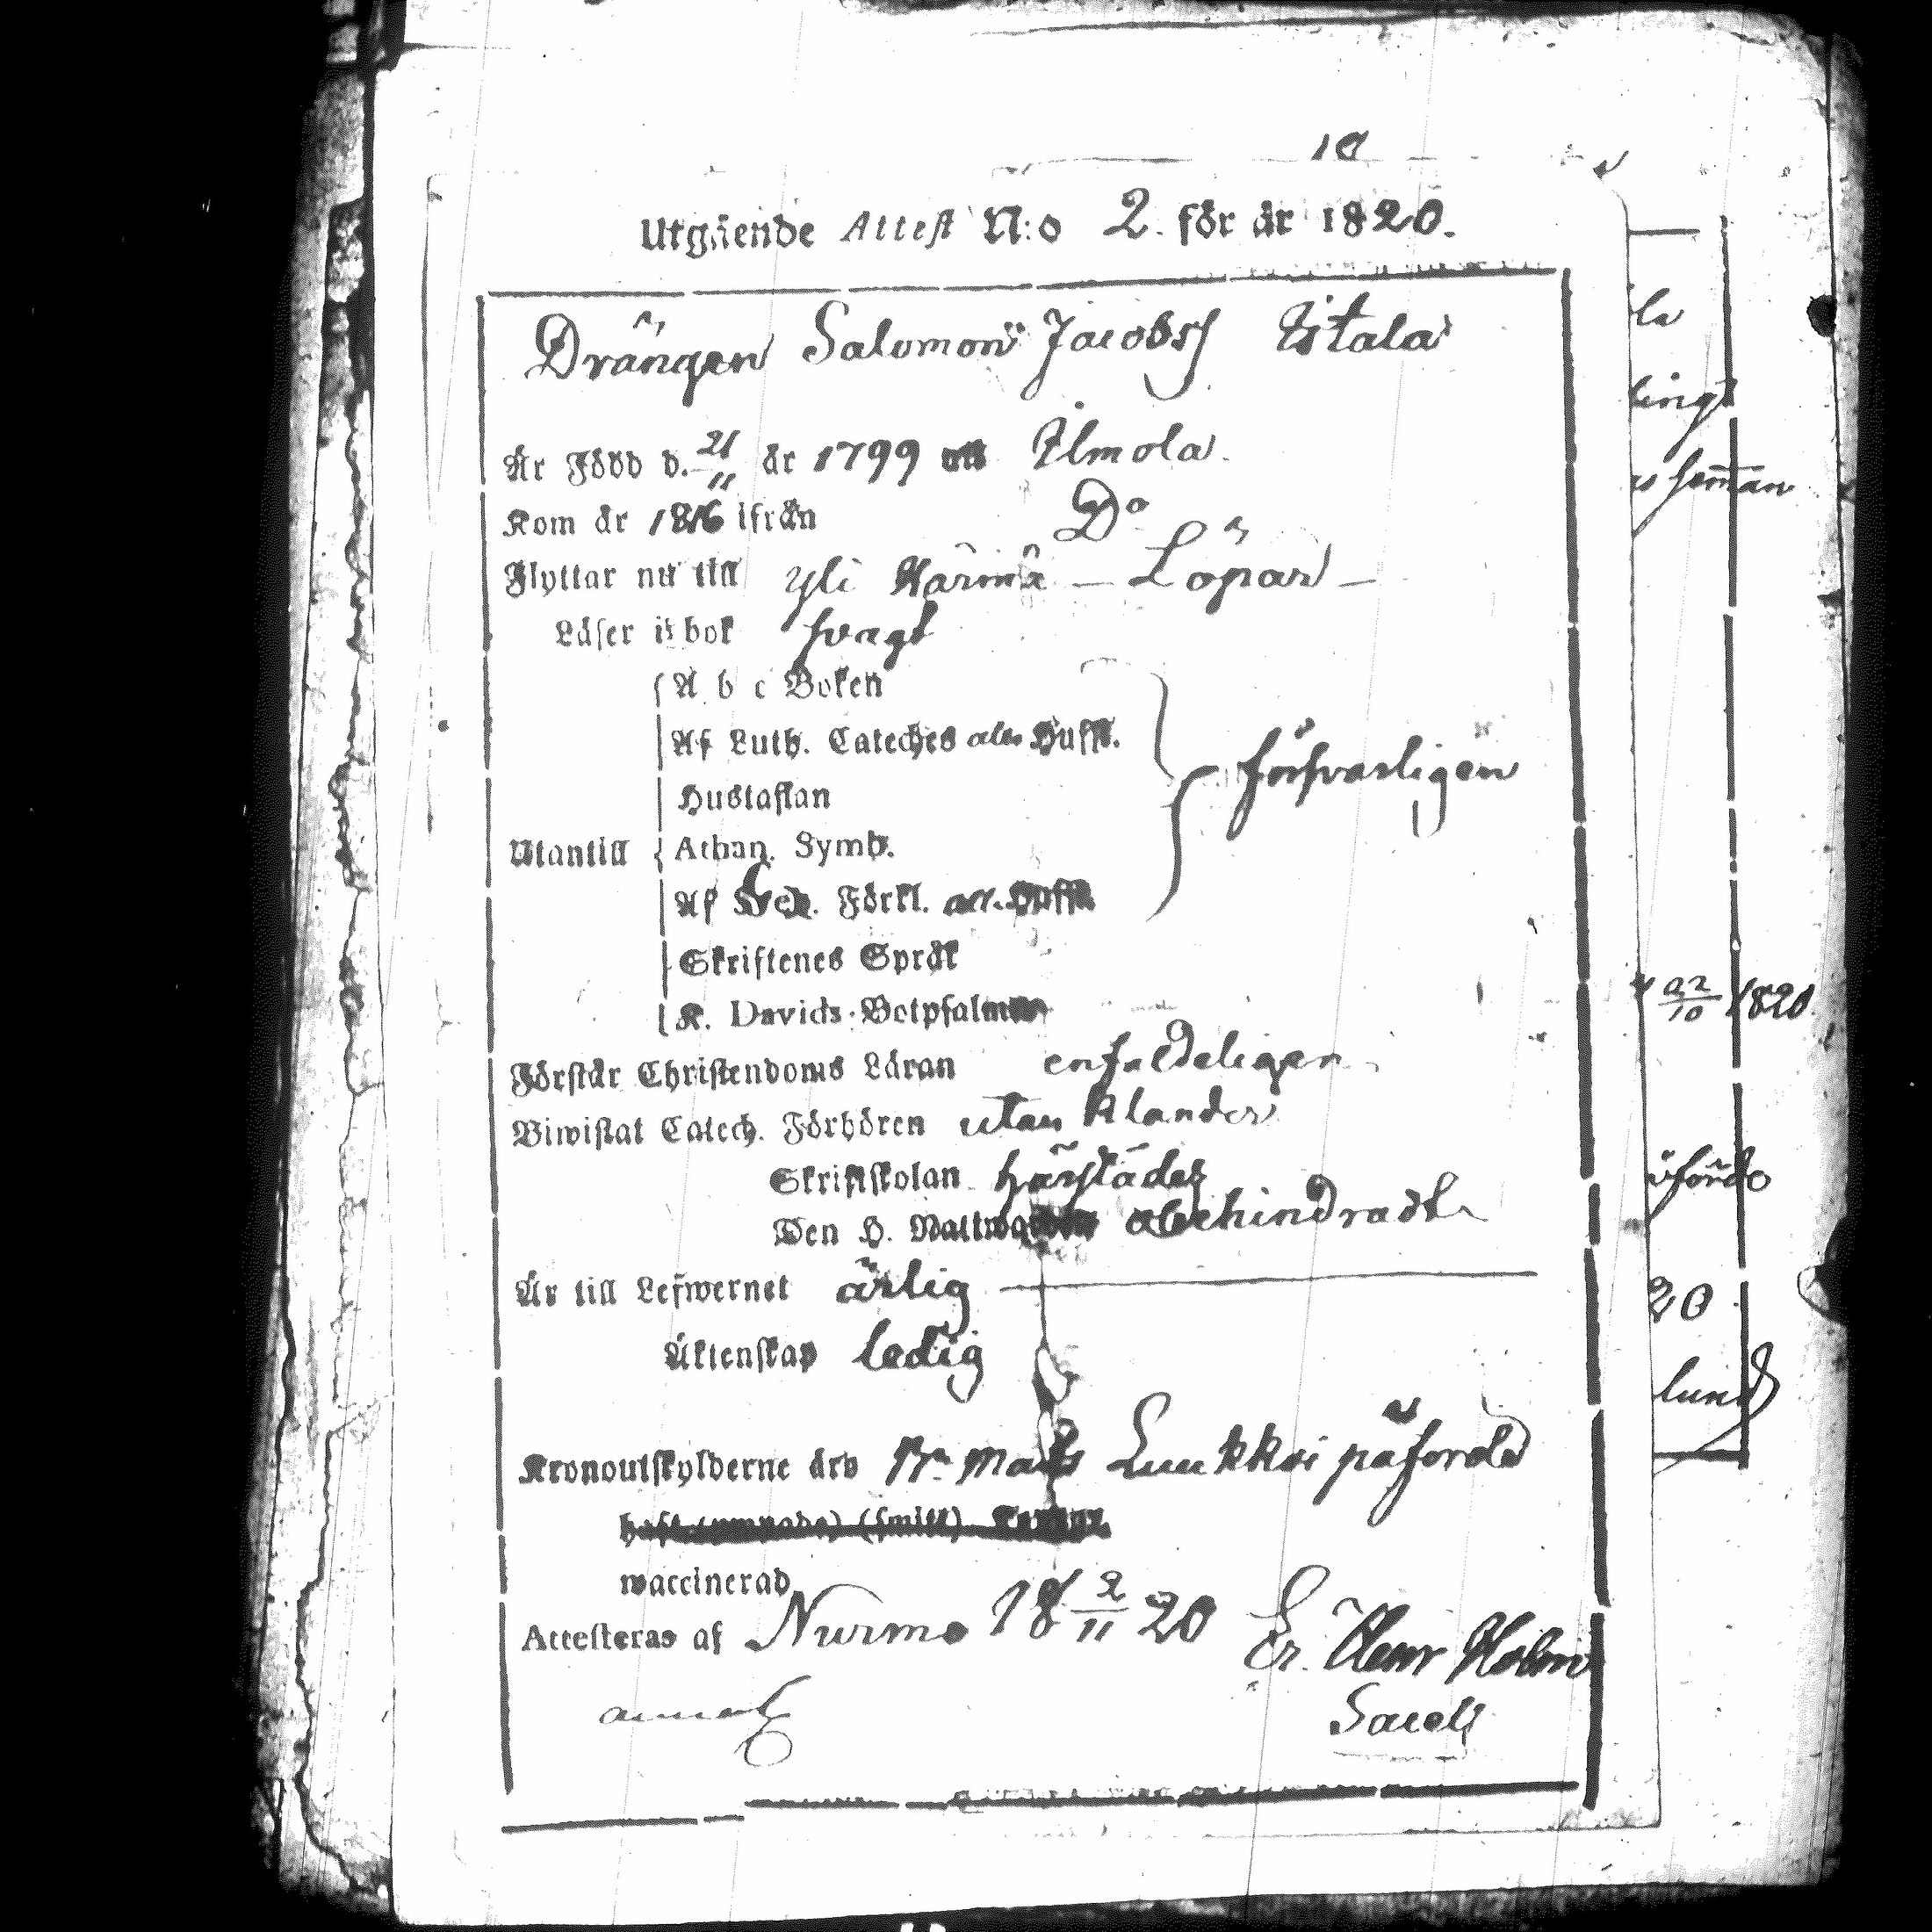 10
Utgående Attest N:o 2. för år 1820.
Drängen Salomon Jacobss Ístala
Är Född d. 21/11 år 1799 Ilmola.
Kom år 1816 ifrån Do
Flyttar nu till Yli Härmä – Löpar –
Läser i bok svagt
A b c Boken
Af Luth. Cateches
Hustaflan
försvarligen
Utantill Athan. Symb.
Af Förkl.
Skriftenes Språk
K. Davids Botpsalmer
Förstår Christendoms Läran enfaldeligen
Biwistat Catech. Förhören utan klander
Skriftskolan härstädes
Den H. Nattwarden obehindradt
Är till Lefwernet ärlig
Äktenskap ledig
Kronoutskylderne äro Mats Luukkoi påförde
waccinerad
Attesteras af Nurmo 18 2/11 20 Er. Henr Holm
Sacell
la
lingt
22/10 1820
20
lund